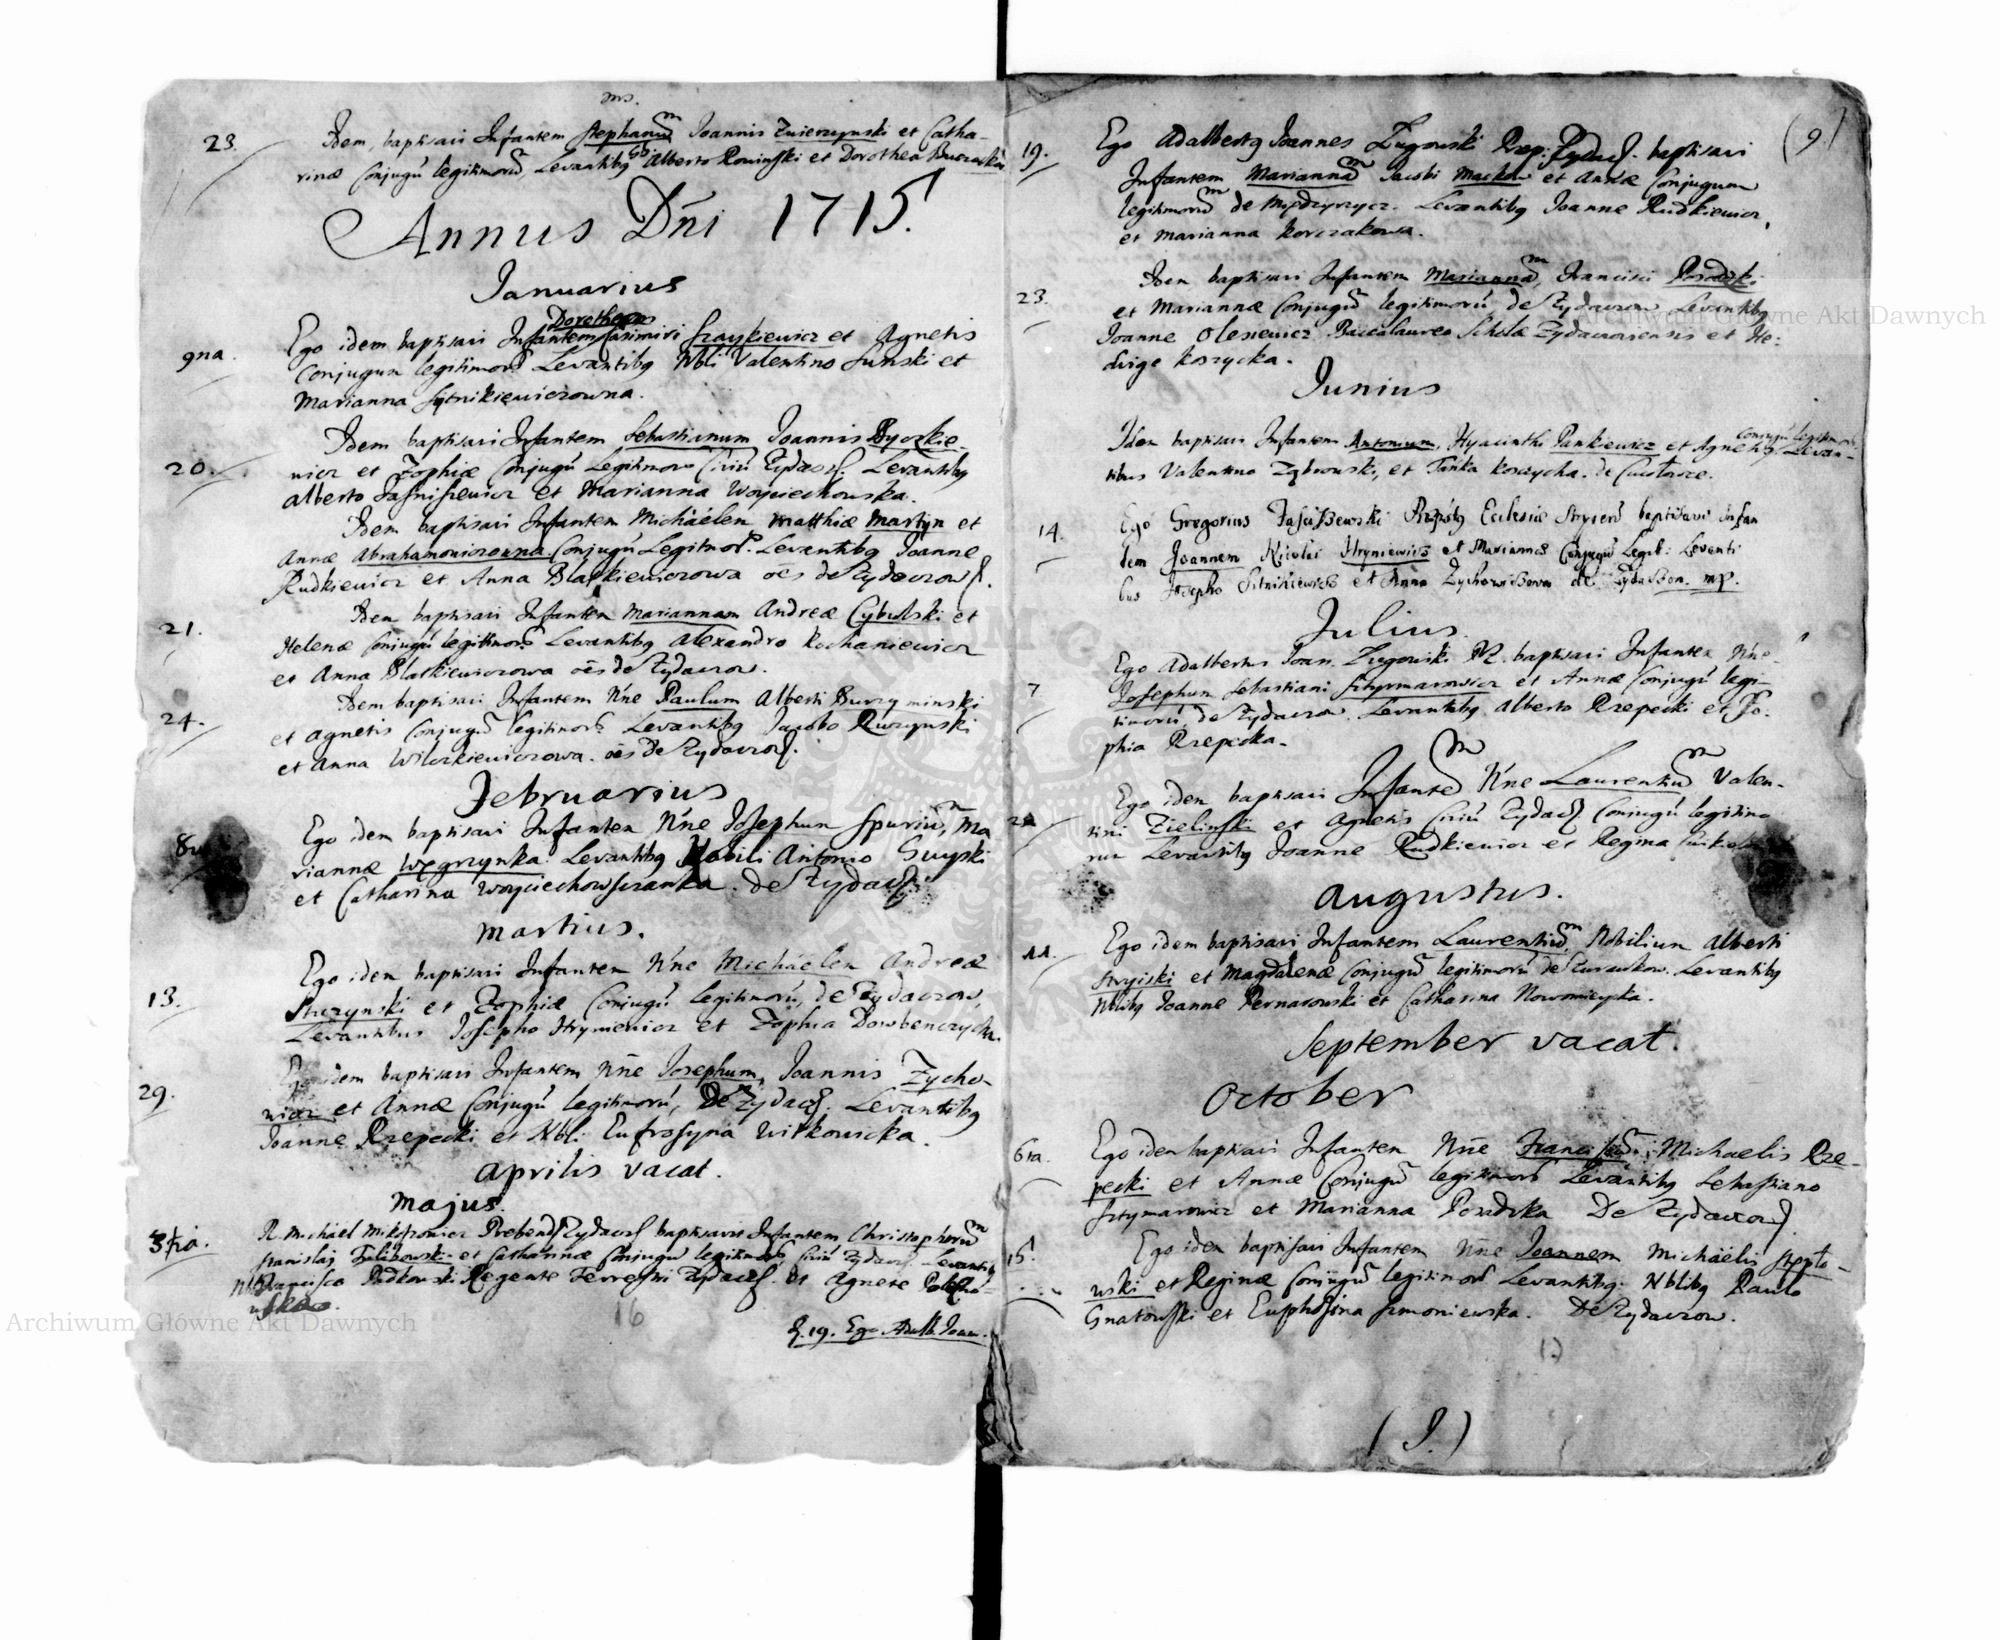 23. Idem, baptisavi Infantem Stephanum Joannis Zwierzynski et Catha-
rinæ Conjugũ legitimorũ, Levantibg Alberto Rowinski et Dorothea
Annus Dñi 1715.
Januarius
Dorotheam
9na. Ego idem baptisavi Infantem Casimiri Fraykiewicz et Agnetis
Conjugum legitimorũ Levantibg Nbli Valentino Sunski et
Marianna Sytnikiewiczowna.
Idem baptisavi Infantem Sebastianum Joannis Byczkie
20. wicz et Zophiæ Conjugũ Legitimorũ Civiũ Zydacz. Levantibg
Alberto Jasnisiewicz et Marianna Woyciechowska.
Idem baptisavi Infantem Michäelem Matthiæ Martyn et
Annæ Abrahamowiczowna Conjugũ Legitimor. Levantibg Joanne
Rudkiewicz et Anna Blatkiewiczowa oẽs de Zydaczow.
Idem baptisavi Infantem Mariannam Andreæ Cybulski et
21. Helenæ Conjugũ legitimorũ Levantibg Alexandro Kochaniewicz
et Anna Blatkiewiczowa oẽs de Zydaczow.
Idem baptisavi Infantem Nñe Paulum Alberti Burzyminski
24. et Agnetis Conjugũ legitimorũ Levantibg Jacobo Ruszynski
et Anna Wilczkiewiczowa. oẽs de Zydaczow.
Februarius
8va Ego idem baptisavi Infantem Nñe Josephum spuriũ, Ma
riannæ Węgrzynka. Levantibg Nobili Antonio Guyski
et Catharina Woyciechowszczanka. de Zydacz.
Martius.
Ego idem baptisavi Infantem Nñe Michäelem Andreæ
13. Struzynski et Zophiæ Conjugũ legitimorũ, de Zydaczow,
Levantibus Josepho Hryniewicz et Zophia Dowbenczycha.
Ego idem baptisavi Infantem Nñe Josephum, Joannis Zycho-
29. wicz et Annæ Conjugũ legitimorũ, De Zydacz. Levantibg
Joanne Rzepecki et Nbli Eufrosyna Witkowicka.
Aprilis vacat.
Majus.
3tia. R. Michäel Prebend. Zydacz baptisavit Infantem Christophorũ
Stanislaj Falibowski et Catharinæ Conjugum legitimorũ Civiũ Zydacz. Levantibg
Nbli Francisco Rudkowski Regente Terrestri Zydacz. et Agnete
16
D. 19. Ego Adalb. Joan.
(9)
19. Ego Adalbertg Joannes Zugowski Præp. Zydacz. baptisavi
Infantem Mariannã Jacobi Mackow et Annæ Conjugum
legitimorũ de Międzyrzycz. Levantibg Joanne Rudkiewicz,
et Marianna Korczakowa.
Idem baptisavi Infantem Mariannã, Francisci Poradzki
23. et Mariannæ Conjugũ legitimorũ de Zydaczow Levantibg
Joanne Olesiewicz Baccalaureo Scholæ Zydaczoviensis et He-
dvige Koszycka.
Junius
Conjugũ legitimorũ
Idem baptisavi Infantem Antonium, Hyacinthi Pankiewicz et Agnetis Levan-
tibus Valentino Ząbrowski, et Tańka Koszycha. de
14. Ego Gregorius Præpstg Ecclesiæ Stryien baptisavi Infan
tem Joannem Nicolai Hryniewicz et Mariannæ Conjugũ Legit: Levanti
bus Josepho Sitnikiewicz et Anna Zychowiczowa de Zydaczow. mp.
Julius.
Ego Adalbertus Joan. Zugowski PZ. baptisavi Infantem Nñe
7 Josephum Sebastiani Sztyrmarowicz et Annæ Conjugũ legi-
timorũ, de Zydaczow. Levantibg Alberto Rzepecki et So-
phia Rzepecka.
Ego idem baptisavi Infantẽ Nñe Laurentiũ Valen-
tini Zielinski et Agnetis Civiũ Zydacz Conjugũ legitimo
rum Levantibg Joanne Rudkiewicz et Regina
Augustus.
11. Ego idem baptisavi Infantem Laurentiũ, Nobilium Alberti
Stryiski et Magdalenæ Conjugũ legitimorũ de Zurawkow. Levantibg
Nblibg Joanne Pernarowski et Catharina Nowomieyska.
September vacat.
October
6ta. Ego idem baptisavi Infantem Nñe Franciscũ, Michaelis Rze-
pecki et Annæ Conjugũ legitimorũ Levantibg Sebastiano
Sztymarowicz et Marianna Poradzka De Zydaczow.
15. Ego idem baptisavi Infantem Nñe Joannem Michäelis Stepko-
wski et Reginæ Conjugũ legitimorũ Levantibg. Nblibg Paulo
Gnatowski et Euphosina Szmoniewska. De Zydaczow.
Archiwum Główne Akt Dawnych
Archiwum Główne Akt Dawnych